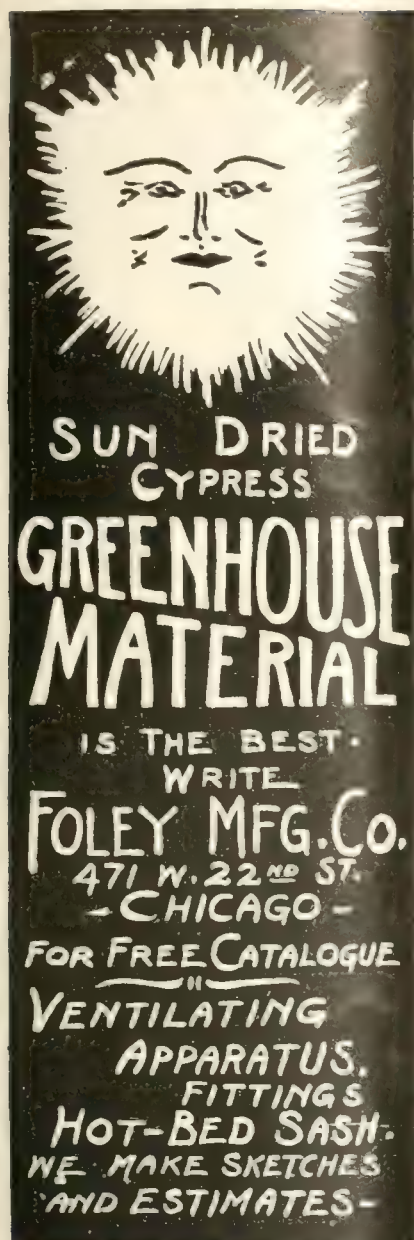 SUN DRIED
CYPRESS
GREENHOUSE
MATERIAL
IS THE BEST.
WRITE
FOLEY MFG. CO.
471 W. 22ND ST.
-CHICAGO-
FOR FREE CATALOGUE
VENTILATING
APPARATUS,
FITTINGS
HOT-BED SASH.
WE MAKE SKETCHES
AND ESTIMATES-